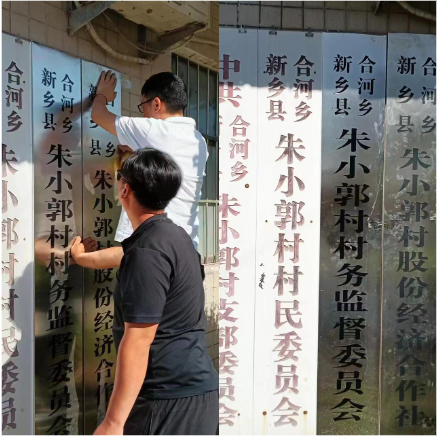 合河乡
新乡县
朱小郭村
委员会
合河乡
新乡县
朱小郭村村务监督委员会
合河乡
乡县
朱小郭村股份经济合作
中共
合河乡
朱小郭村支部委员会
合河乡
新乡县
朱小郭村村民委员会
合河乡
新乡县
朱小郭村村务监督委员会
合河乡
新乡县
朱小郭村股份经济合作社